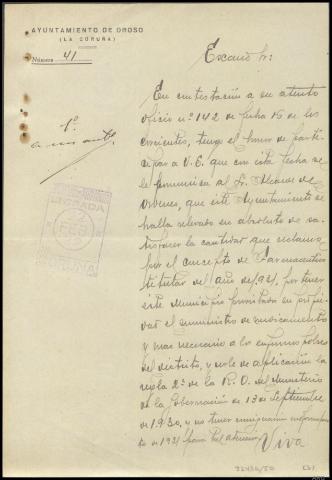 AYUNTAMIENTO DE OROSO
(LA CORUÑA)
Número 41
Excmo Sr:
En contestación a su atento
oficio nº 142 de fecha 15 de los
corrientes, tengo el honor de parti-
cipar a V.E. que con esta fecha se
le comunica al Sr. Alcalde de
Ordenes, que este Ayuntamiento se
halla relevado en absoluto de sa-
tisfacer la cantidad que reclama
por el concepto de Farmaceutico
titular del año de 1931, por tener
este Municipio
el suministro de medicamentos
y mas necesario a los enfermos pobres
del distrito, y serle de aplicación la
regla 2ª de la R.O. del Ministerio
de la Gobernación de 13 de Septiembre
de 1930, y no tener consignación en
de 1931 para tal atención
Viva
ENTRADA
FEB
CORUÑA
32436/50